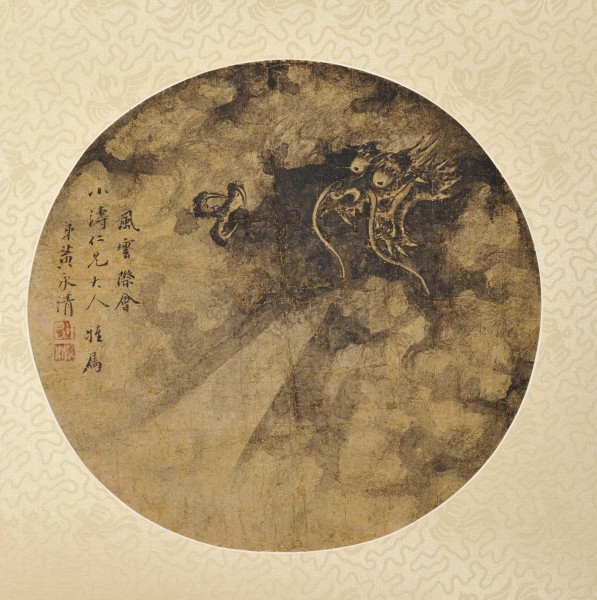 風雲際會
小濤仁兄大人 雅屬
弟黃永清